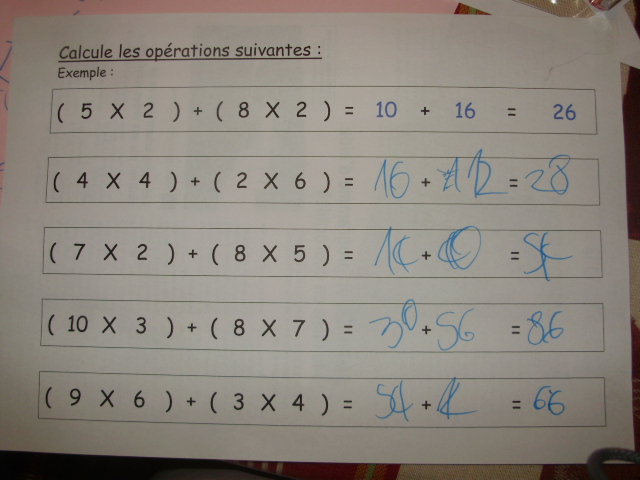 Calcule les opérations suivantes :
Exemple :
( 5 X 2 ) + ( 8 X 2 ) = 10 + 16 = 26
( 4 X 4 ) + ( 2 X 6 ) = 16 + 12 = 28
( 7 X 2 ) + ( 8 X 5 ) = 14 + 40 = 54
( 10 X 3 ) + ( 8 X 7 ) = 30 + 56 = 86
( 9 X 6 ) + ( 3 X 4 ) = 54 + = 66